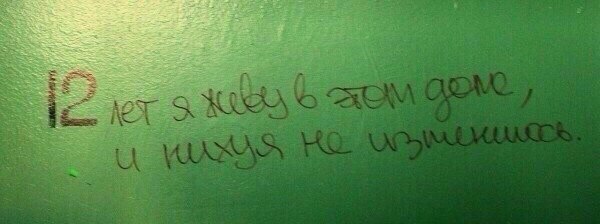 12 лет я живу в этом доме,
и нихуя не изменилось.